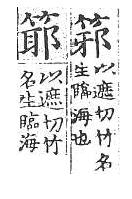 以遮切竹名
生臨海也
以遮切竹
名生臨海